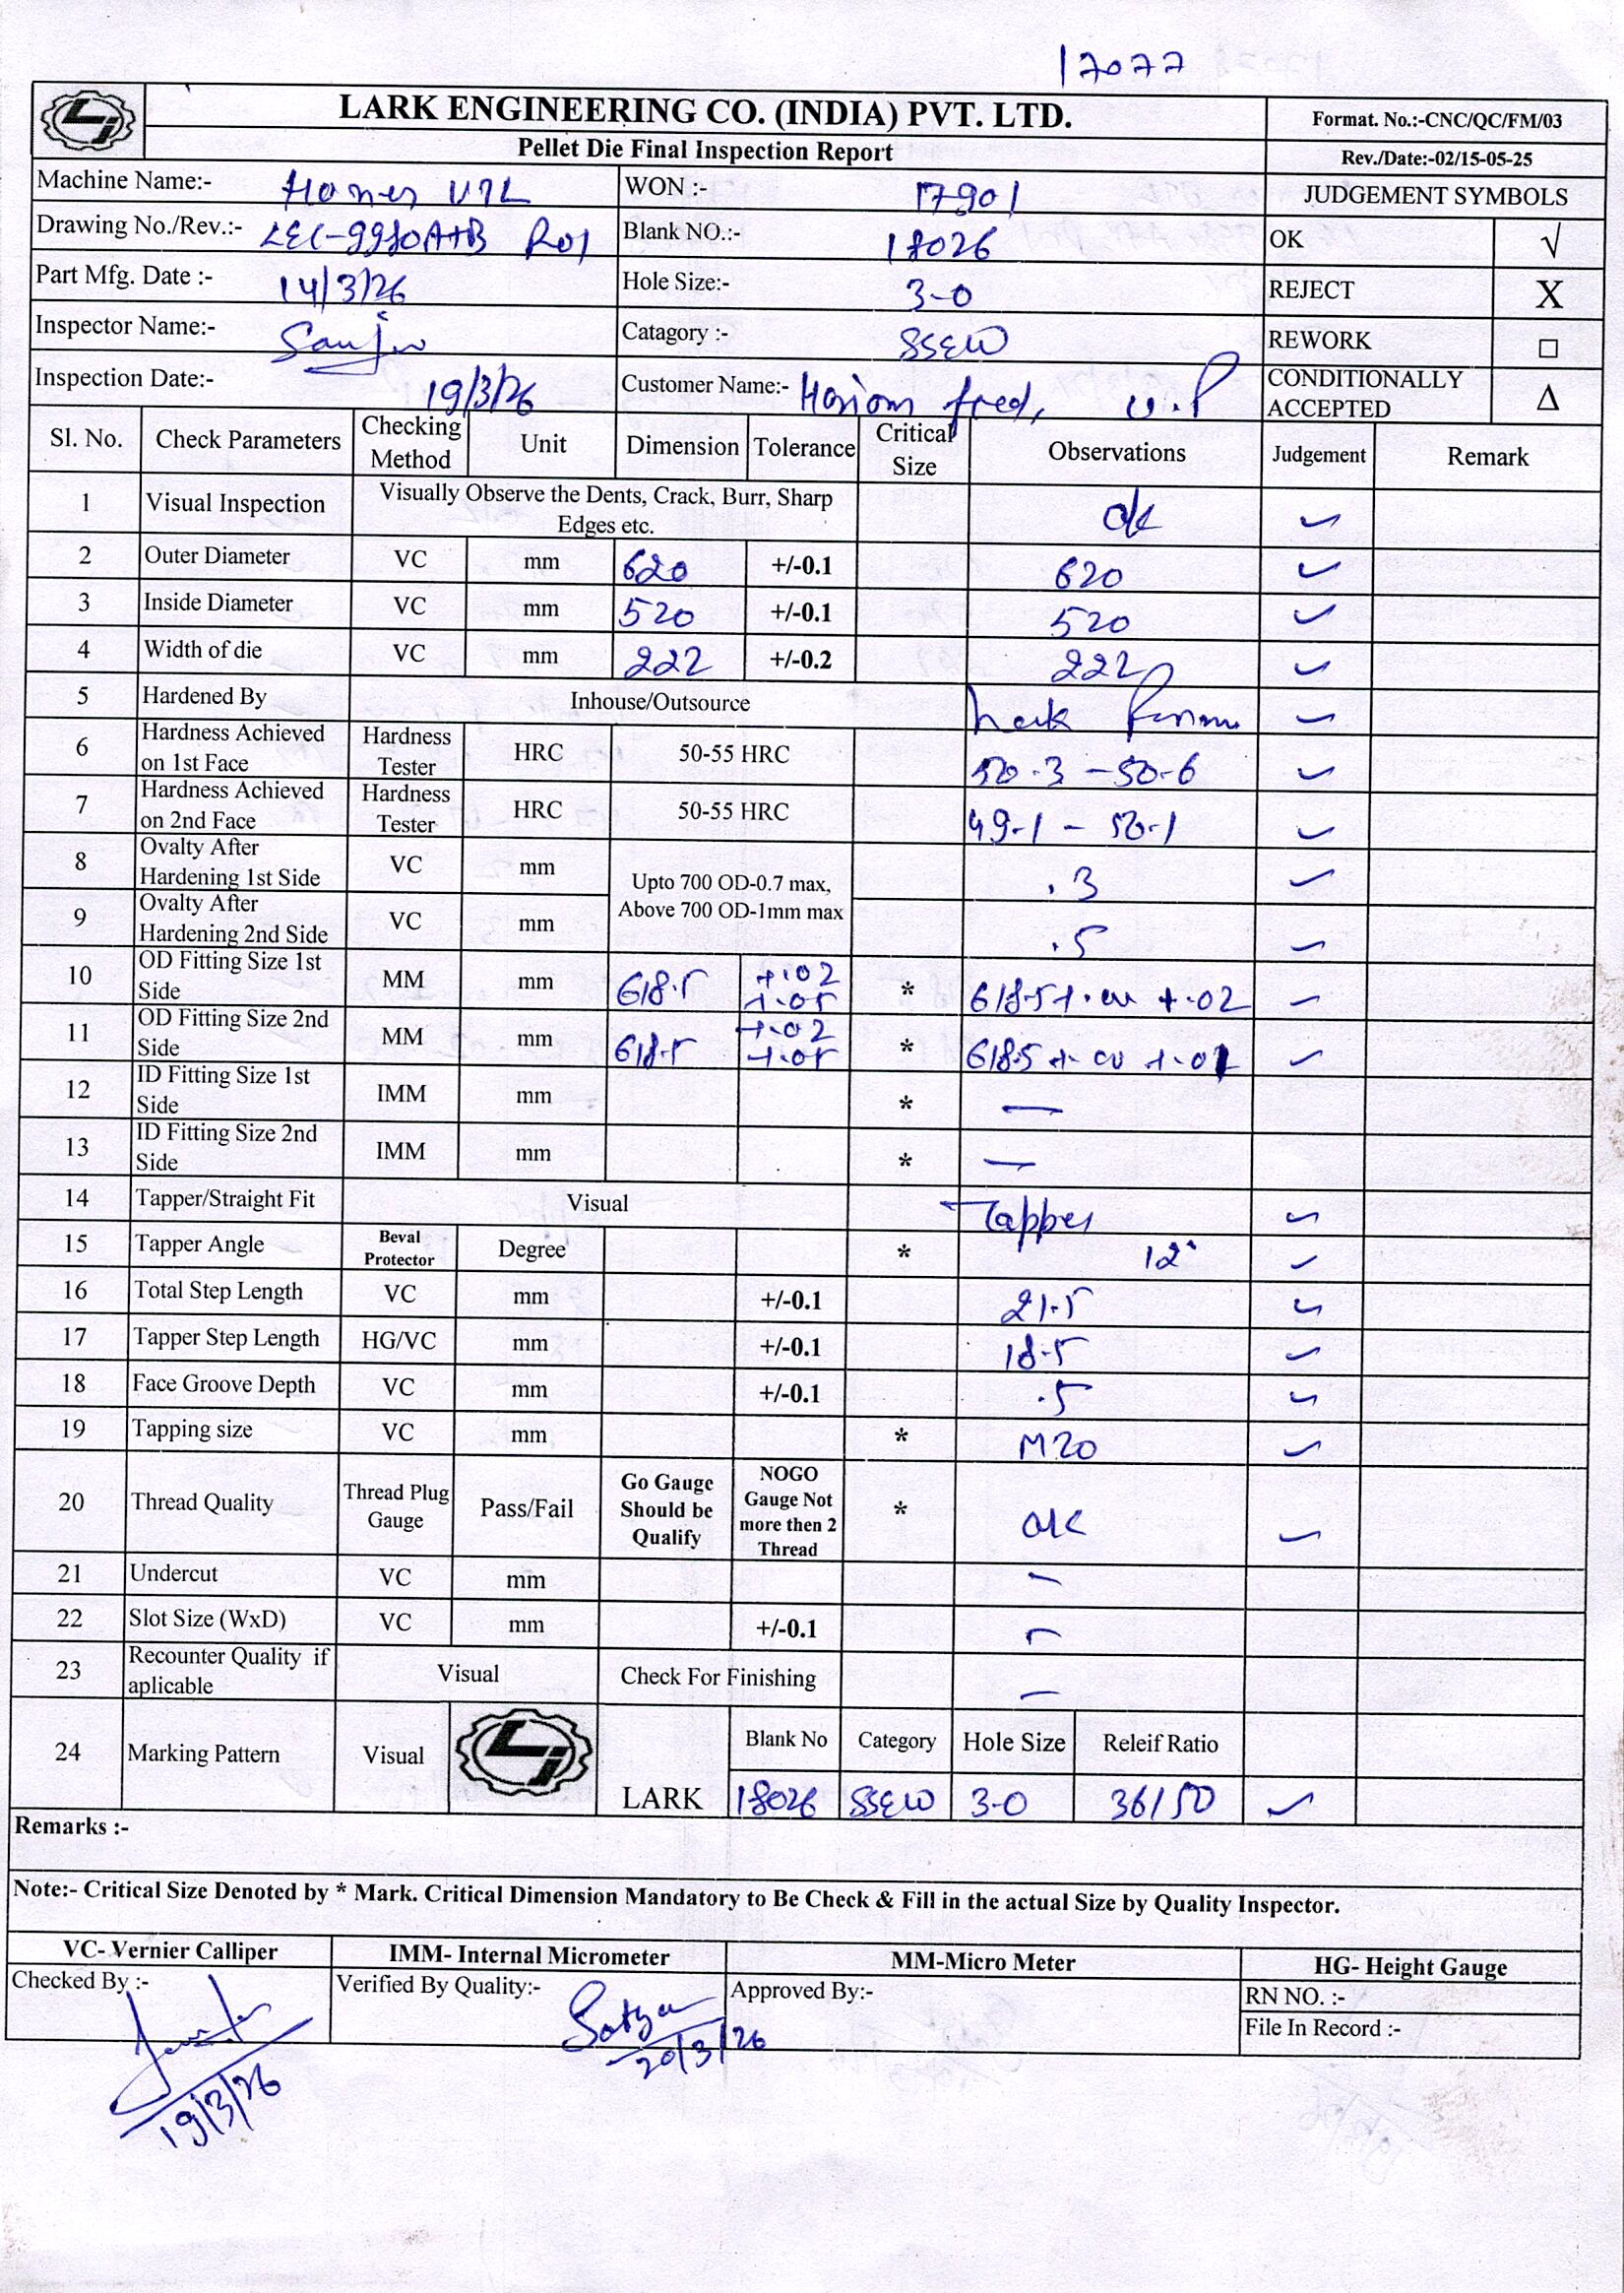 17077
LARK ENGINEERING CO. (INDIA) PVT. LTD.
Format. No.:-CNC/QC/FM/03
Pellet Die Final Inspection Report
Rev./Date:-02/15-05-25
Machine Name:- WON :- 17901 JUDGEMENT SYMBOLS
Drawing No./Rev.:- LEC-9980A+B R01 Blank NO.:- 18026 OK √
Part Mfg. Date :- 14/3/26 Hole Size:- 3-0 REJECT X
Inspector Name:- Catagory :- SSEW REWORK □
Inspection Date:- 19/3/26 Customer Name:- Hariom feed, U.P CONDITIONALLY ACCEPTED Δ
Sl. No. Check Parameters Checking Method Unit Dimension Tolerance Critical Size Observations Judgement Remark
1 Visual Inspection Visually Observe the Dents, Crack, Burr, Sharp Edges etc. ok ✓
2 Outer Diameter VC mm 620 +/-0.1 620 ✓
3 Inside Diameter VC mm 520 +/-0.1 520 ✓
4 Width of die VC mm 222 +/-0.2 222 ✓
5 Hardened By Inhouse/Outsource Lark ✓
6 Hardness Achieved on 1st Face Hardness Tester HRC 50-55 HRC 50.3 - 50.6 ✓
7 Hardness Achieved on 2nd Face Hardness Tester HRC 50-55 HRC 49.1 - 50.1 ✓
8 Ovalty After Hardening 1st Side VC mm Upto 700 OD-0.7 max, Above 700 OD-1mm max .3 ✓
9 Ovalty After Hardening 2nd Side VC mm .5 ✓
10 OD Fitting Size 1st Side MM mm 618.5 +.02 +.05 * 618.5 +.02 ✓
11 OD Fitting Size 2nd Side MM mm 618.5 +.02 +.05 * 618.5 ✓
12 ID Fitting Size 1st Side IMM mm * —
13 ID Fitting Size 2nd Side IMM mm * —
14 Tapper/Straight Fit Visual Tapper ✓
15 Tapper Angle Beval Protector Degree * 12° ✓
16 Total Step Length VC mm +/-0.1 21.5 ✓
17 Tapper Step Length HG/VC mm +/-0.1 18.5 ✓
18 Face Groove Depth VC mm +/-0.1 .5 ✓
19 Tapping size VC mm * M20 ✓
20 Thread Quality Thread Plug Gauge Pass/Fail Go Gauge Should be Qualify NOGO Gauge Not more then 2 Thread * ok ✓
21 Undercut VC mm —
22 Slot Size (WxD) VC mm +/-0.1 —
23 Recounter Quality if aplicable Visual Check For Finishing —
24 Marking Pattern Visual LARK Blank No Category Hole Size Releif Ratio
18026 SSEW 3-0 36/50 ✓
Remarks :-
Note:- Critical Size Denoted by * Mark. Critical Dimension Mandatory to Be Check & Fill in the actual Size by Quality Inspector.
VC- Vernier Calliper IMM- Internal Micrometer MM-Micro Meter HG- Height Gauge
Checked By :- Verified By Quality:- Satya Approved By:- RN NO. :-
File In Record :-
20/3/26
19/3/26